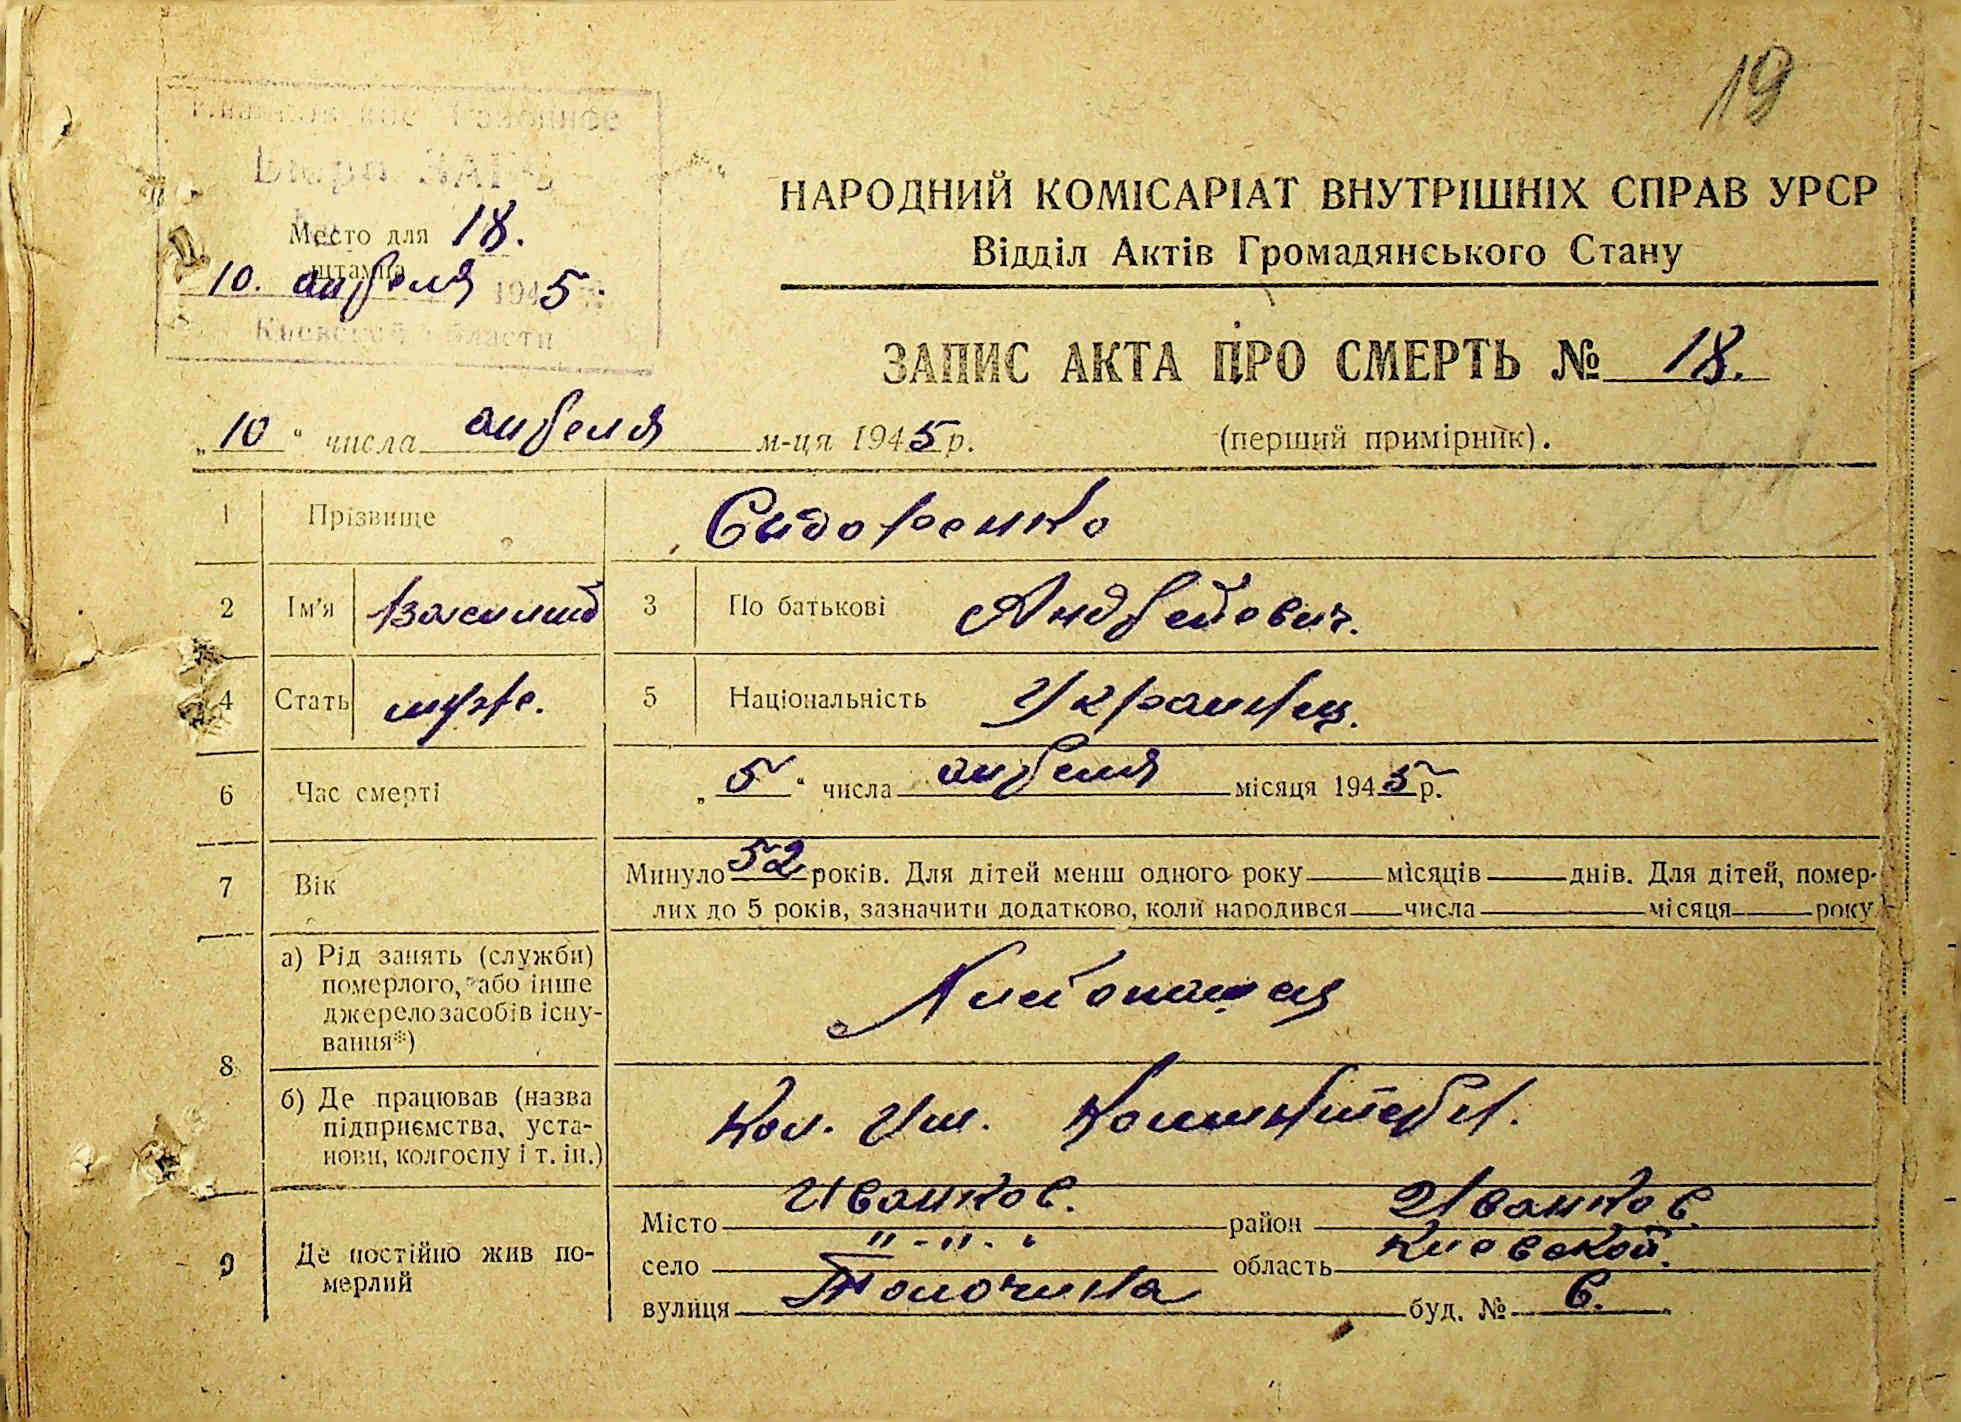 19
районное
Бюро ЗАГС
Место для 18.
штампа
10. апреля 1945
Киевской области
НАРОДНИЙ КОМІСАРІАТ ВНУТРІШНІХ СПРАВ УРСР
Відділ Актів Громадянського Стану
ЗАПИС АКТА ПРО СМЕРТЬ № 18.
„10“ числа апреля м-ця 1945 р. (перший примірник).
1 Прізвище Сидоренко
2 Ім'я Василий 3 По батькові Андреевич.
4 Стать муж. 5 Національність Украинец.
6 Час смерті „5“ числа апреля місяця 1945 р.
7 Вік Минуло 52 років. Для дітей менш одного року місяців днів. Для дітей, помер-
лих до 5 років, зазначити додатково, коли народився числа місяця року
8 а) Рід занять (служби)
померлого, або інше
джерело засобів існу-
вання*)
б) Де працював (назва
підприємства, уста-
нови, колгоспу і т. ін.)
Кол. Им. Коминтерн.
9 Де постійно жив по-
мерлий
Місто Иванков. район Иванков
село " - " - " область Киевской.
вулиця буд. № 6.